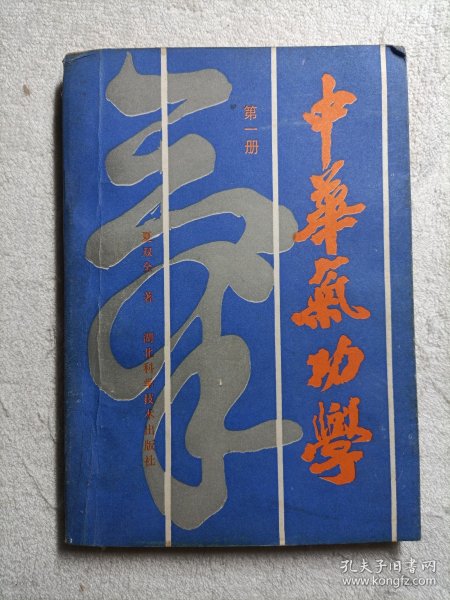 中華氣功學
第一册
夏双全 著
湖北科学技术出版社
氣
孔夫子旧书网
www.kongfz.com